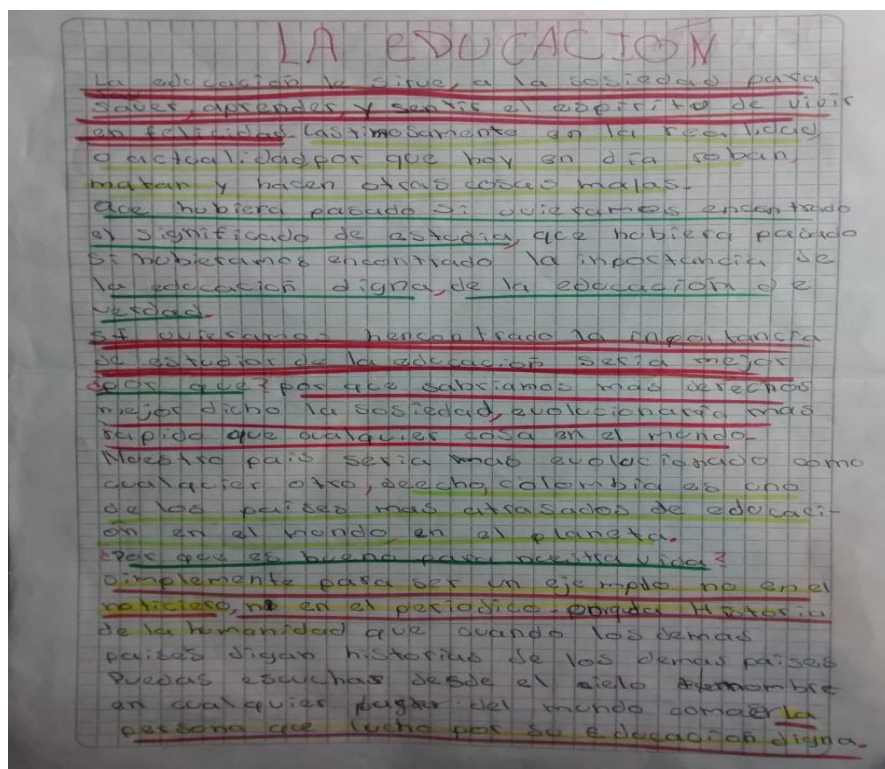 LA EDUCACION
La educación le sirve, a la sosiedad para
saver, aprender, y sentir el espirito de vivir
en felicidad. Lastimosamente en la realidad,
o actualidad, por que hoy en día roban,
matan y hasen otras cosas malas.
que hubiera pasado si uvieramos encontrado
el significado de estudia, que hubiera pasado
si hubieramos encontrado la inportancia de
la educación digna, de la educación de
verdad.
si uvieramos hencontrado la inportancia
de estudior de la educación seria mejor
¿por que? por que sabriamos mas derechos
mejor dicho la sosiedad, evolucionaria mas
rapido que cualquier cosa en el mundo.
Nuestro pais seria mas evolucionado como
cualquier otro, deecho, colombia es uno
de los paises mas atrasados de educaci-
ón en el mundo, en el planeta.
¿Por que es buena para nuestra vida?
simplemente para ser un ejemplo no en el
noticiero, no en el periodico. Historia
de la humanidad que cuando los demas
paises digan historias de los demas paises
Puedas escuchas desde el cielo nombre
en cualquier del mundo como: la
persona que lucho por su educación digna.